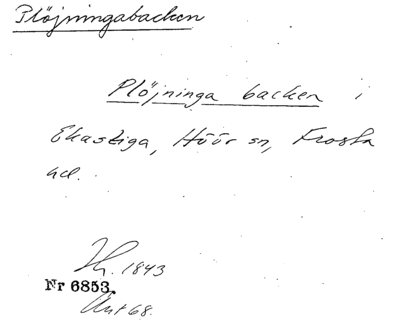 Plöjningabacken
Plöjninga backen i
Ekastiga, Höör sn, Frosta
hd.
1843
Nr 6853.
68.